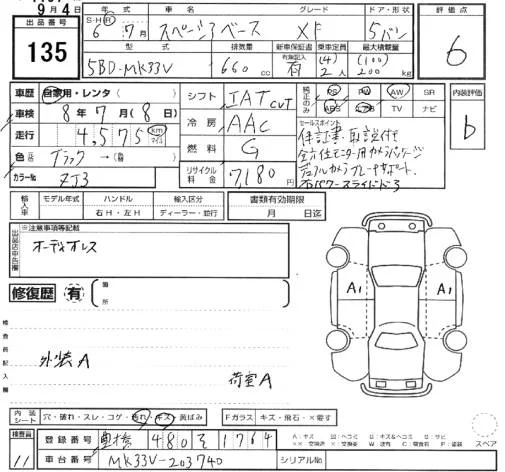 9月4日
出品番号
135
年式 車名 グレード ドア・形状 評価点
S・H・R 6年7月 スペーシアベース XF 5バン 6
型式 排気量 新車保証書 乗車定員 最大積載量
5BD-MK33V 660cc 有 (4)2人 (100)200kg
車歴 自家用・レンタ( ) シフト IAT CVT 純正のみ PS PW AW SR 内装評価
車検 8年7月(8日) 冷房 AAC ABS エアB TV ナビ b
走行 4,575 km マイル セールスポイント
保証書、取説付
燃料 G 全方位モニター用カメラパッケージ
色 ブラック→( ) デュアルカメラブレーキサポート
カラーNo. ZJ3 リサイクル料金 7,180円 右パワースライドドア
輸入車 モデル年式 ハンドル 輸入区分 書類有効期限
右H・左H ディーラー・並行 月 日迄
出品店申告欄 ※注意事項等記載
オーディオレス
修復歴 有 箇所
A1 A1
検査員記入欄
外装A
荷室A
内装シート 穴・破れ・スレ・コゲ・汚れ・キズ・黄ばみ Fガラス キズ・飛石・×要す
検査員 11 登録番号 豊橋 480 る 1764
車台番号 MK33V-203740 シリアルNo.
スペア